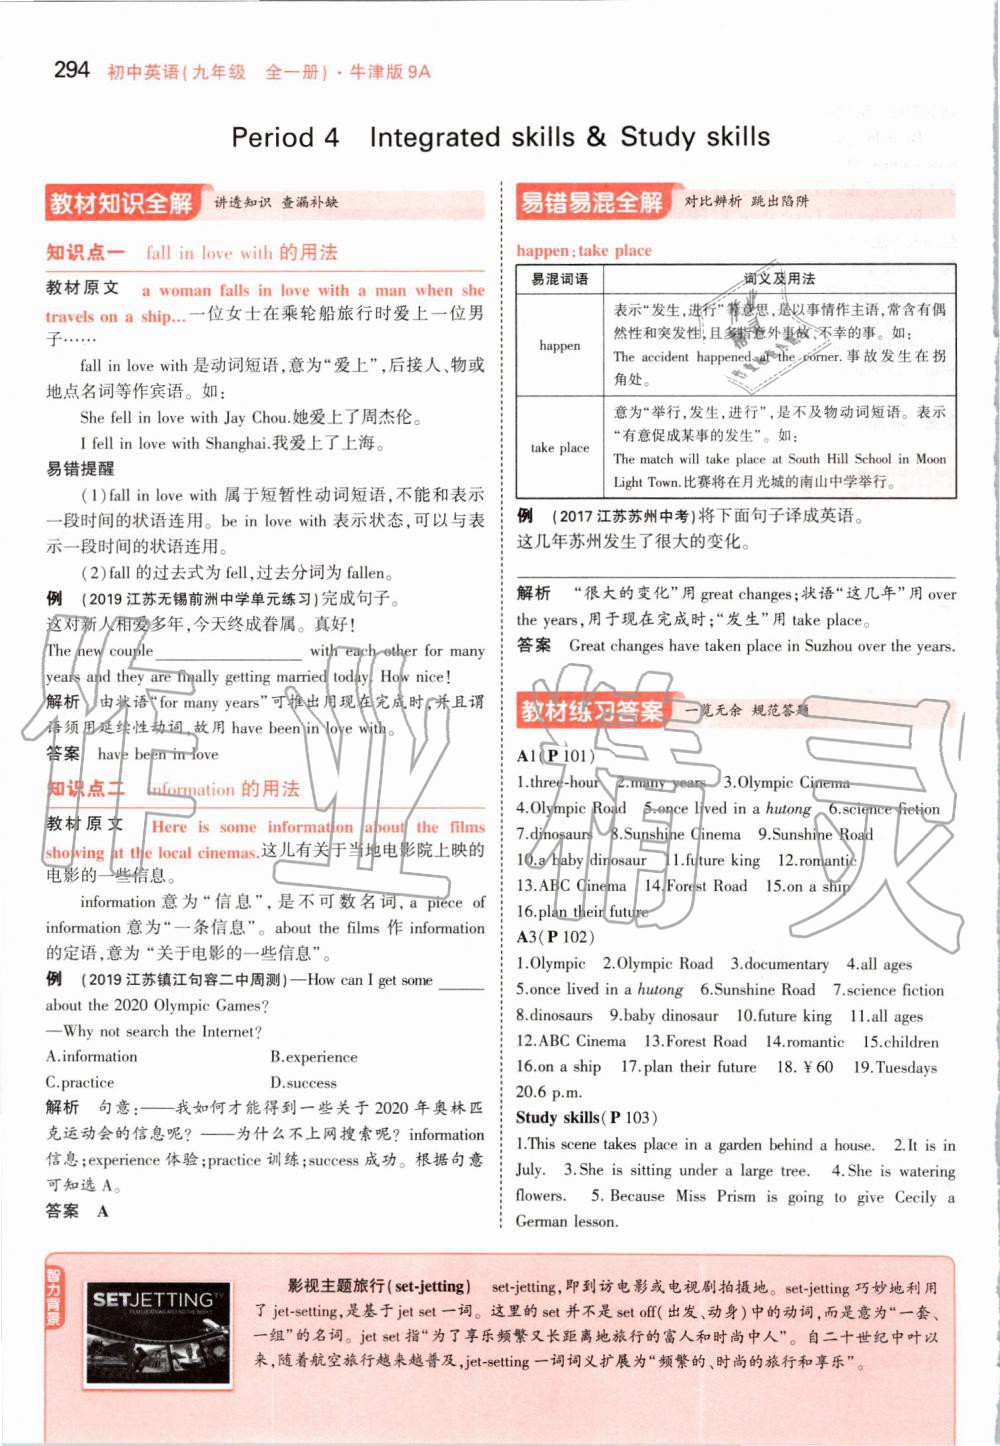 294 初中英语(九年级 全一册)·牛津版9A
Period 4 Integrated skills & Study skills
教材知识全解 讲透知识 查漏补缺
知识点一 fall in love with 的用法
教材原文 a woman falls in love with a man when she
travels on a ship...一位女士在乘轮船旅行时爱上一位男
子……
fall in love with 是动词短语,意为“爱上”,后接人、物或
地点名词等作宾语。如:
She fell in love with Jay Chou.她爱上了周杰伦。
I fell in love with Shanghai.我爱上了上海。
易错提醒
(1)fall in love with 属于短暂性动词短语,不能和表示
一段时间的状语连用。be in love with 表示状态,可以与表
示一段时间的状语连用。
(2)fall 的过去式为 fell,过去分词为 fallen。
例 (2019江苏无锡前洲中学单元练习)完成句子。
这对新人相爱多年,今天终成眷属。真好!
The new couple ________ with each other for many
years and they are finally getting married today. How nice!
解析 由状语“for many years”可推出用现在完成时,并且谓
语须用延续性动词,故用 have been in love with。
答案 have been in love
知识点二 information 的用法
教材原文 Here is some information about the films
showing at the local cinemas.这儿有关于当地电影院上映的
电影的一些信息。
information 意为“信息”,是不可数名词,a piece of
information 意为“一条信息”。about the films 作 information
的定语,意为“关于电影的一些信息”。
例 (2019江苏镇江句容二中周测)—How can I get some ____
about the 2020 Olympic Games?
—Why not search the Internet?
A.information B.experience
C.practice D.success
解析 句意:——我如何才能得到一些关于2020年奥林匹
克运动会的信息呢?——为什么不上网搜索呢? information
信息;experience 体验;practice 训练;success 成功。根据句意
可知选A。
答案 A
易错易混全解 对比辨析 跳出陷阱
happen;take place
易混词语 词义及用法
happen
表示“发生,进行”等意思,是以事情作主语,常含有偶
然性和突发性,且多指意外事故、不幸的事。如:
The accident happened at the corner.事故发生在拐
角处。
take place
意为“举行,发生,进行”,是不及物动词短语。表示
“有意促成某事的发生”。如:
The match will take place at South Hill School in Moon
Light Town.比赛将在月光城的南山中学举行。
例 (2017江苏苏州中考)将下面句子译成英语。
这几年苏州发生了很大的变化。
解析 “很大的变化”用 great changes;状语“这几年”用 over
the years,用于现在完成时;“发生”用 take place。
答案 Great changes have taken place in Suzhou over the years.
教材练习答案 一览无余 规范答题
A1(P 101)
1.three-hour 2.many years 3.Olympic Cinema
4.Olympic Road 5.once lived in a hutong 6.science fiction
7.dinosaurs 8.Sunshine Cinema 9.Sunshine Road
10.a baby dinosaur 11.future king 12.romantic
13.ABC Cinema 14.Forest Road 15.on a ship
16.plan their future
A3(P 102)
1.Olympic 2.Olympic Road 3.documentary 4.all ages
5.once lived in a hutong 6.Sunshine Road 7.science fiction
8.dinosaurs 9.baby dinosaur 10.future king 11.all ages
12.ABC Cinema 13.Forest Road 14.romantic 15.children
16.on a ship 17.plan their future 18.¥60 19.Tuesdays
20.6 p.m.
Study skills(P 103)
1.This scene takes place in a garden behind a house. 2.It is in
July. 3.She is sitting under a large tree. 4.She is watering
flowers. 5.Because Miss Prism is going to give Cecily a
German lesson.
智力背景
SETJETTING
影视主题旅行(set-jetting) set-jetting,即到访电影或电视剧拍摄地。set-jetting 巧妙地利用
了 jet-setting,是基于 jet set 一词。这里的 set 并不是 set off(出发、动身)中的动词,而是意为“一套、
一组”的名词。jet set 指“为了享乐频繁又长距离地旅行的富人和时尚中人”。自二十世纪中叶以
来,随着航空旅行越来越普及,jet-setting 一词词义扩展为“频繁的、时尚的旅行和享乐”。
作业精灵